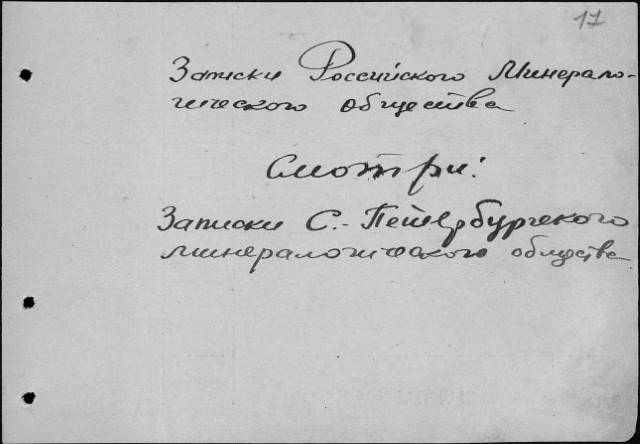 17
Записки Российского Минерало-
гического общества
Смотри:
Записки С.-Петербургского
минералогического общества